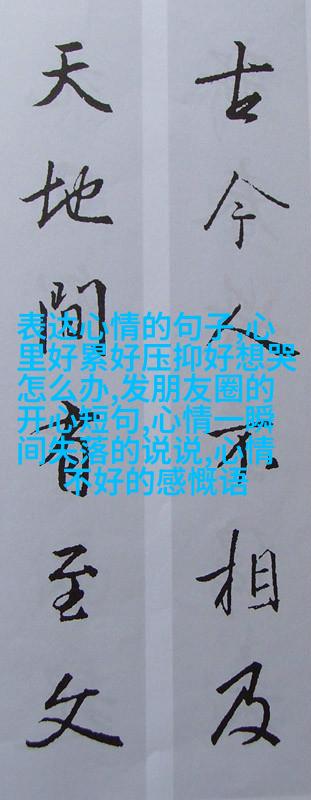 古今人不相及
天地間有至文
表达心情的句子,心
里好累好压抑好想哭
怎么办,发朋友圈的
开心短句,心情一瞬
间失落的说说,心情
不好的感慨语